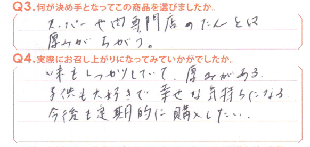 Q3.何が決め手となってこの商品を選びましたか。
スーパーや肉専門店のたんとは
厚みがちがう。
Q4.実際にお召し上がりになってみていかがでしたか。
味もしっかりしていて、厚みがある。
子供も大好きで幸せな気持ちになる
今後も定期的に購入したい。